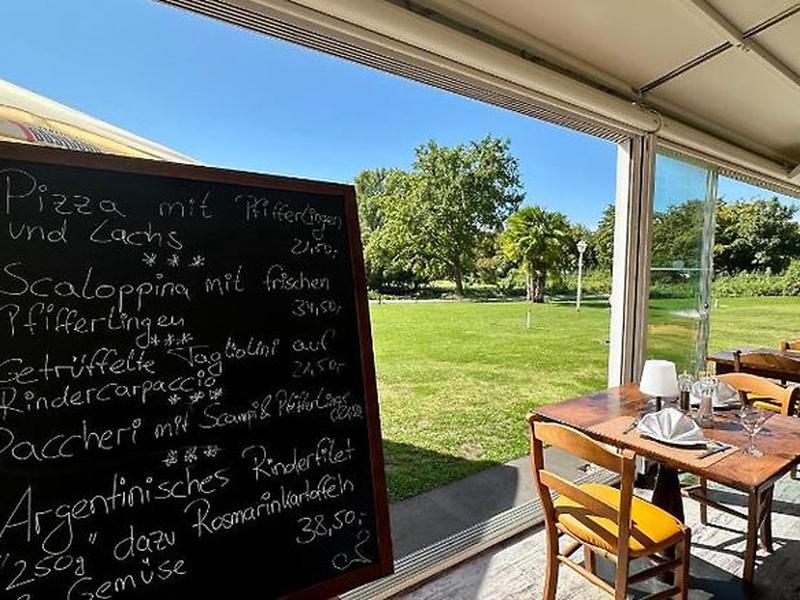 Pizza mit Pfifferlingen
und Lachs 21,50,-
***
Scaloppina mit frischen
Pfifferlingen 34,50,-
***
Getrüffelte Tagliolini auf
Rindercarpaccio
***
Paccheri mit Scampi & Pfifferlings
***
Argentinisches Rinderfilet
"250g" dazu Rosmarinkartoffeln
Gemüse 38,50,-